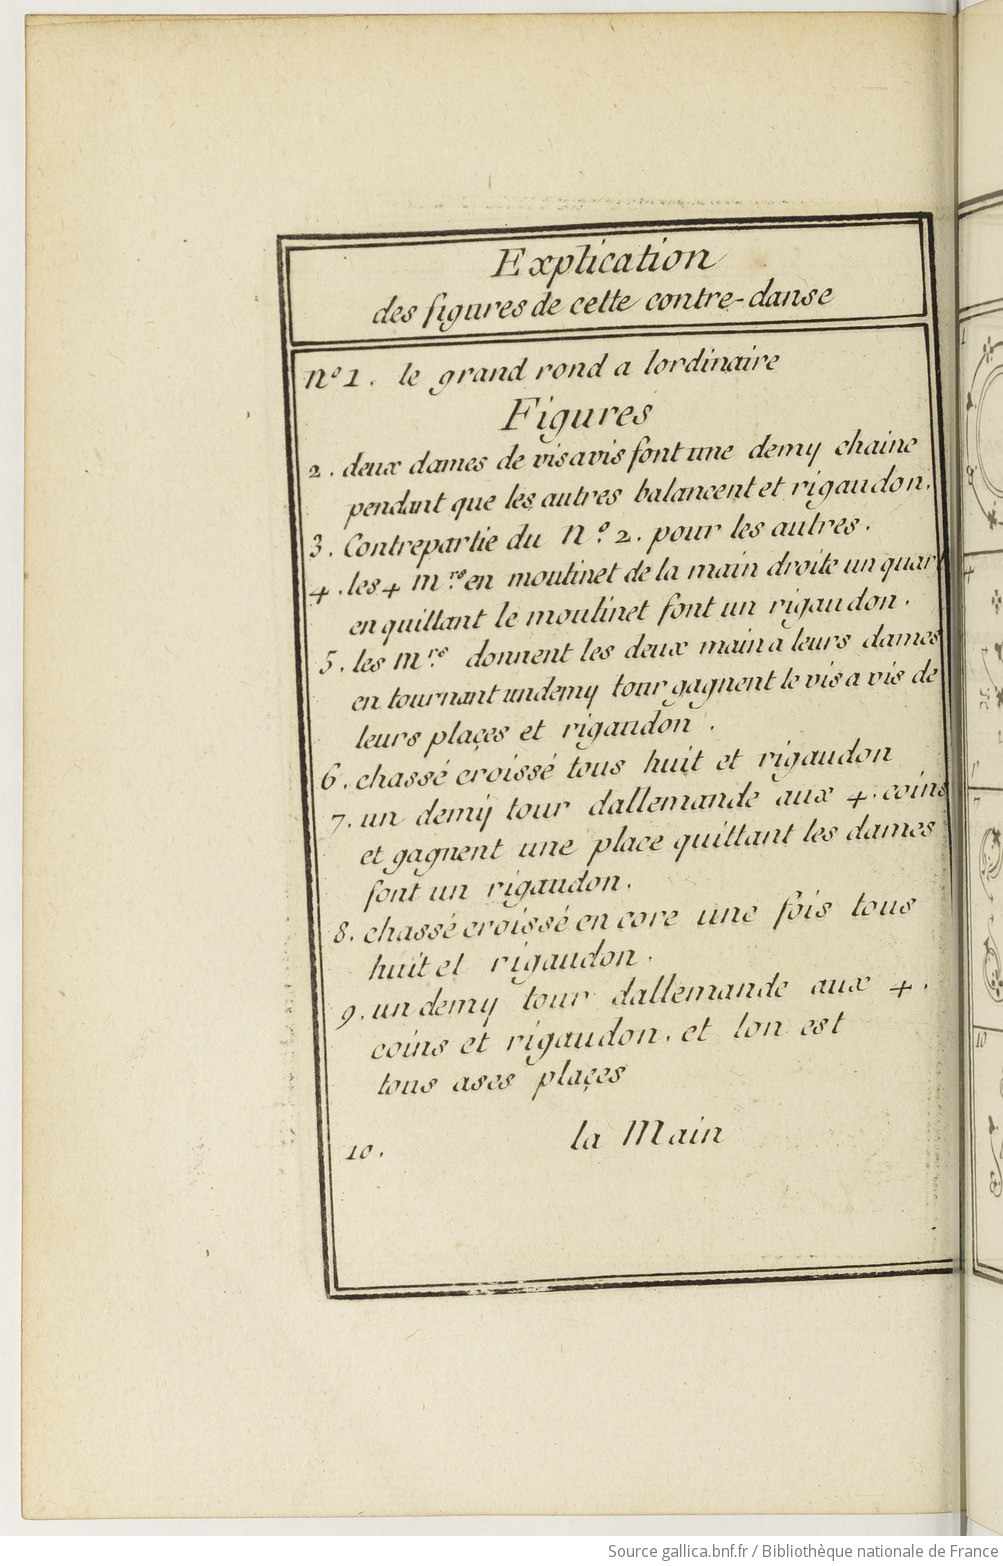 Explication
des figures de cette contre-danse
Nº 1. le grand rond a lordinaire
Figures
2. deux dames de visavis font une demy chaine
pendant que les autres balancent et rigaudon.
3. Contrepartie du Nº 2. pour les autres.
4. les 4 mrs en moulinet de la main droite un quart
en quittant le moulinet font un rigaudon.
5. les mrs donnent les deux main a leurs dames
en tournant undemy tour gagnent le vis a vis de
leurs plaçes et rigaudon.
6. chassé croissé tous huit et rigaudon
7. un demy tour dallemande aux 4. coins
et gagnent une place quittant les dames
font un rigaudon.
8. chassé croissé en core une fois tous
huit et rigaudon.
9. un demy tour dallemande aux 4.
coins et rigaudon. et lon est
tous ases plaçes
10. la Main
Source gallica.bnf.fr / Bibliothèque nationale de France